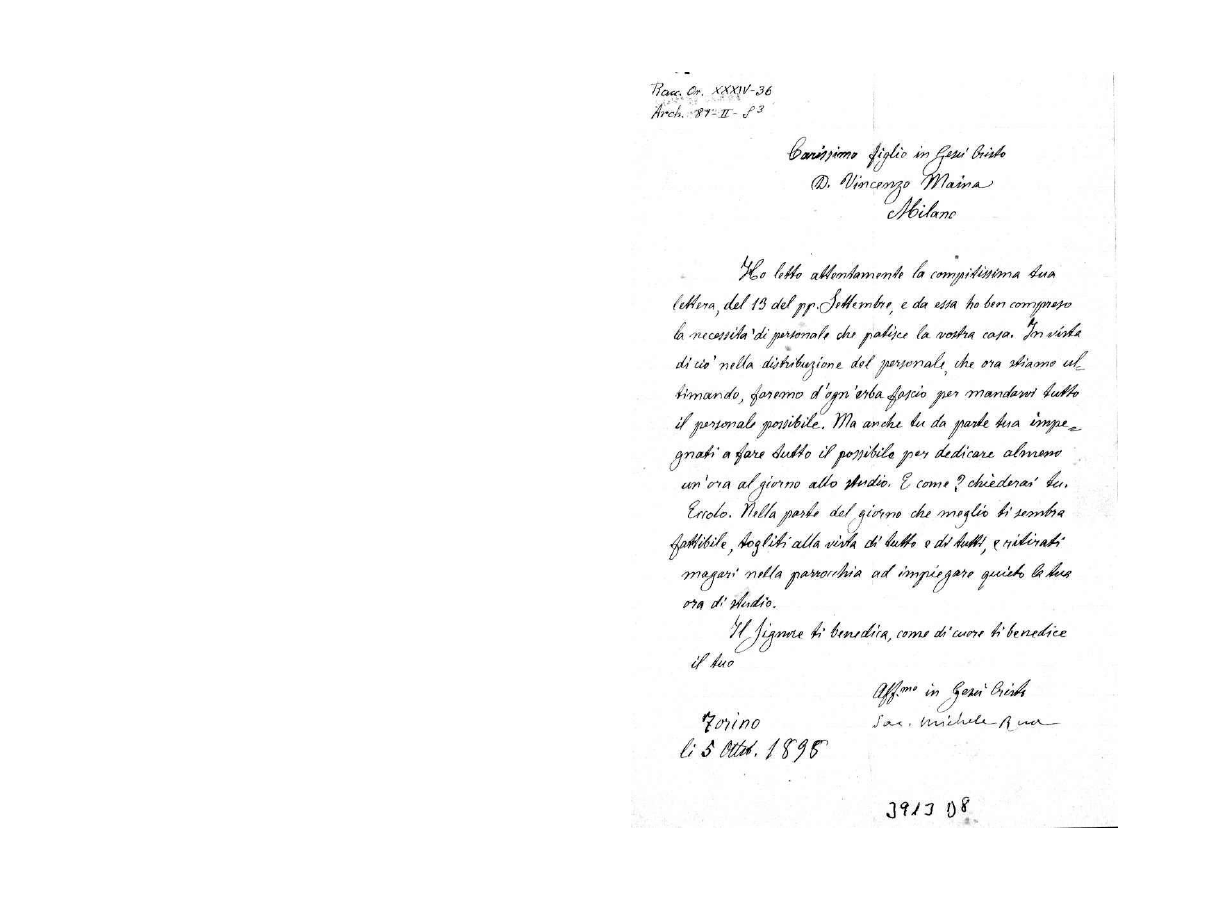 Racc. Or. XXXIV-36
Arch. 87-II- S3
Carissimo figlio in Gesù Cristo
D. Vincenzo Maina
Milano
Ho letto attentamente la compitissima tua
lettera, del 13 del pp. Settembre, e da essa ho ben compreso
la necessità di personale che patisce la vostra casa. In vista
di ciò nella distribuzione del personale, che ora stiamo ul-
timando, faremo d'ogn'erba fascio per mandarvi tutto
il personale possibile. Ma anche tu da parte tua impe-
gnati a fare tutto il possibile per dedicare almeno
un'ora al giorno allo studio. E come? chiederai tu.
Eccolo. Nella parte del giorno che meglio ti sembra
fattibile, togliti alla vista di tutto e di tutti, e ritirati
magari nella parrocchia ad impiegare quieto la tua
ora di studio.
Il Signore ti benedica, come di cuore ti benedice
il tuo
Aff.mo in Gesù Cristo
Sac. Michele Rua
Torino
li 5 Ottob. 1898
3913 D8